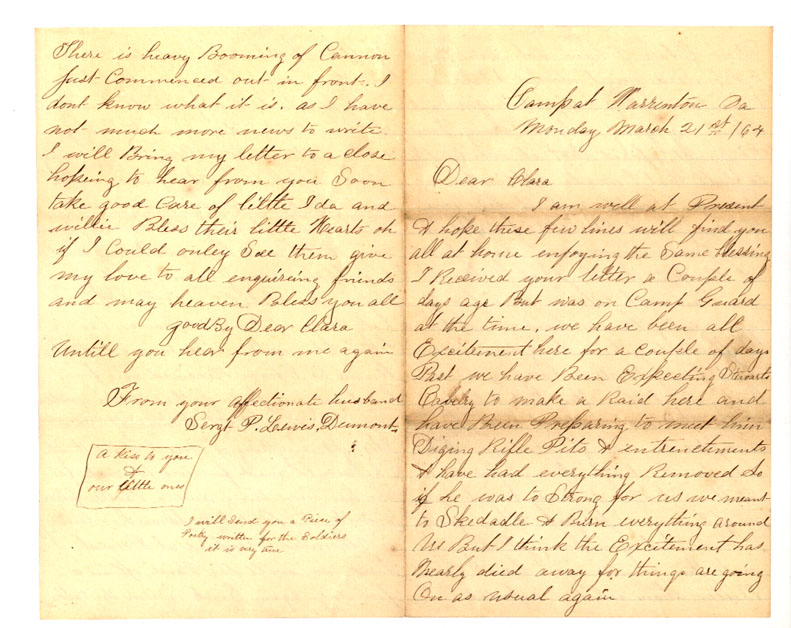 Camp at Warrenton Va
Monday March 21st /64
Dear Clara
I am well at Present
& hope these few lines will find you
all at home enjoying the Same blessing
I Received your letter a Couple of
days ago But was on Camp Guard
at the time. we have been all
Excitement here for a couple of days
Past we have Been Expecting Stuarts
Cavelry to make a Raid here and
have Been Prepairing to meet him
Diging Rifle Pits & entrenchments
& have had everything Removed So
if he was to Strong for us we meant
to Skedadle & Burn everything around
us But I think the Excitement has
Nearly died away for things are going
On as usual again
There is heavy Booming of Cannon
just Commenced out in front. I
dont know what it is. as I have
not much more news to write
I will Bring my letter to a close
hopeing to hear from you Soon
take good Care of little Ida and
willie Bless their little Hearts oh
if I Could onley See them give
my love to all enquireing friends
and may heaven Bless you all
goodBy Dear Clara
Untill you hear from me again
From your affectionate husband
Sergt P. Lewis. Dumont.
A Kiss to you
&
our little ones
I will Send you a Piece of
Poetry written for the Soldiers
it is very true